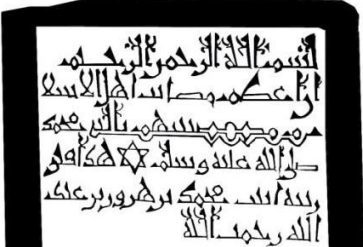 بسم الله الرحمن الرحيم
ان اعظم مصايب اهل الاسلا
م مصيبتهم بالنبي محمد
صلى الله عليه وسلم هذا قبر
ابنت محمد بن هرون بن عبد
الله رحمت الله